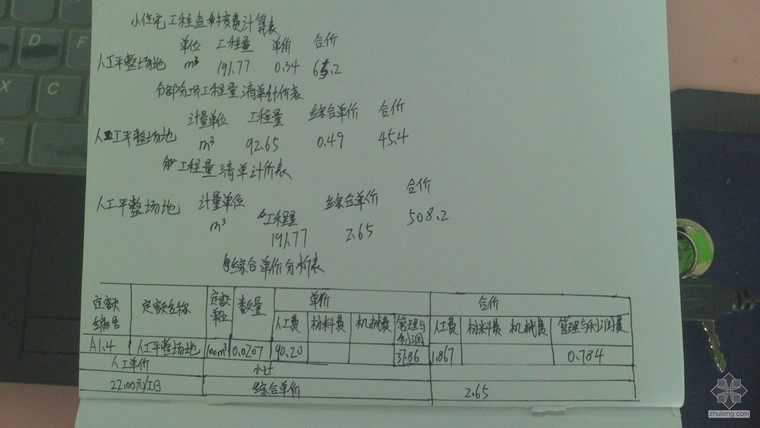 小住宅工程直接费计算表
单位 工程量 单价 合价
人工平整场地 m³ 191.77 0.34 65.2
分部分项工程量清单计价表
计量单位 工程量 综合单价 合价
人工平整场地 m³ 92.65 0.49 45.4
工程量清单计价表
人工平整场地 计量单位 工程量 综合单价 合价
m³ 191.77 2.65 508.2
综合单价分析表
定额编号 定额名称 定额单位 数量 单价 合价
人工费 材料费 机械费 管理与利润 人工费 材料费 机械费 管理与利润费
A1.4 人工平整场地 100m² 0.0207 90.20 37.86 1.867 0.784
人工单价 小计
22.00元/工日 综合单价 2.65
zhulong.com